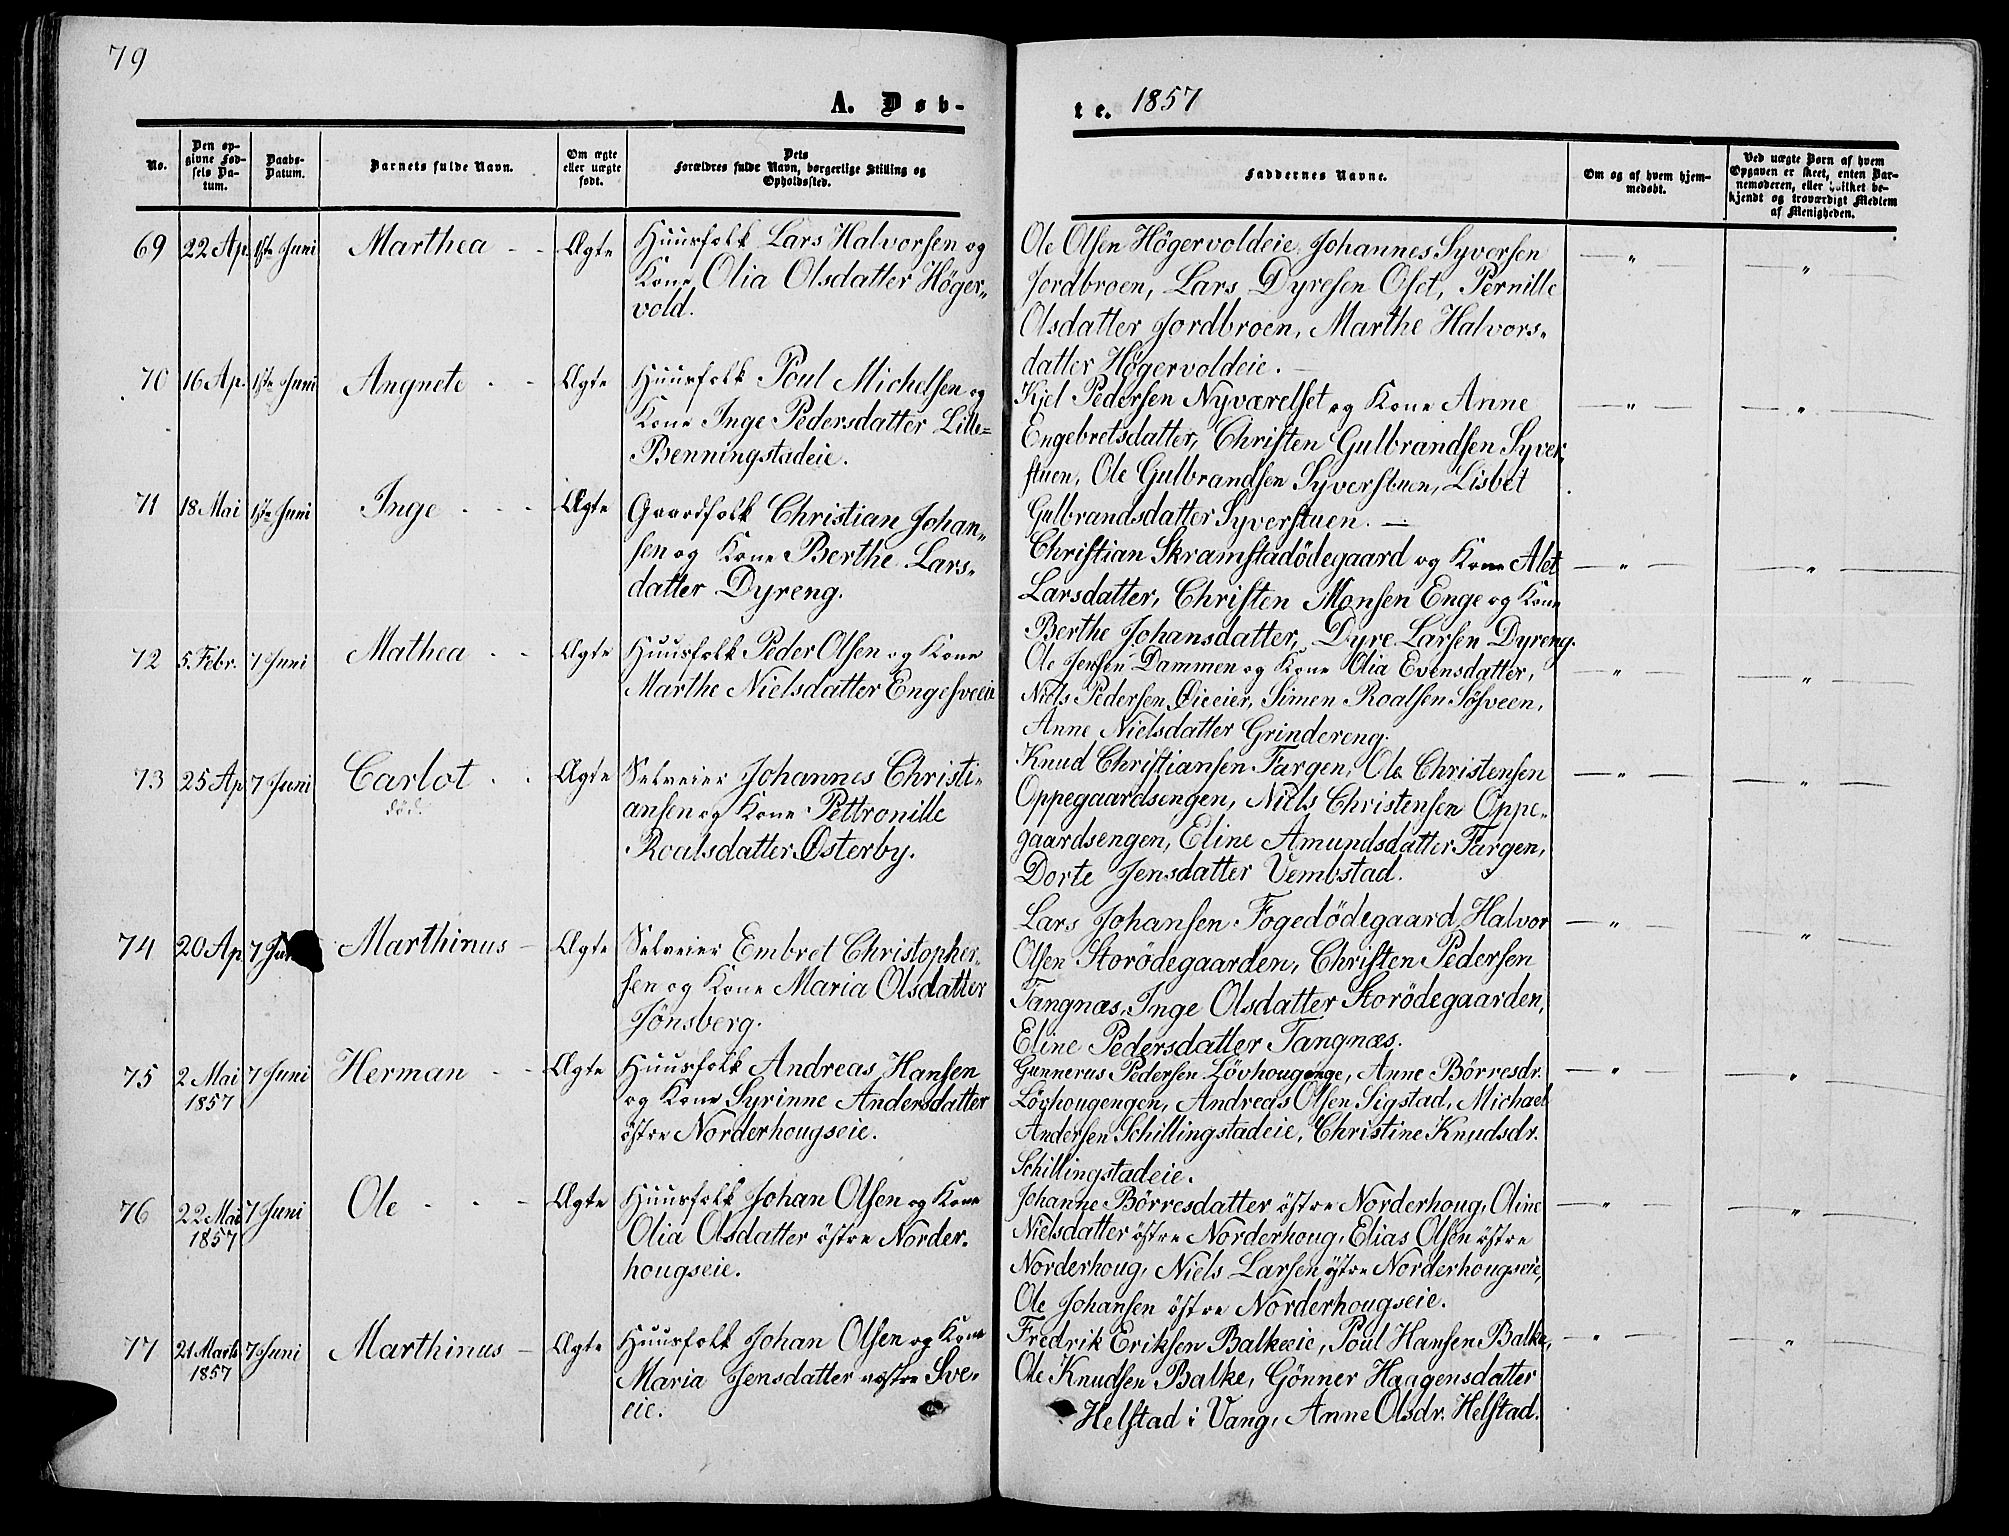 79
A. Døb-
te. 1857
No.
Den op-
givne Fød-
sels Da-
tum.
Daabs-
Datum.
Barnets fulde Navn.
Om ægte
eller uægte
født.
Dets
Forældres fulde Navn, borgerlige Stilling og
Opholdssted.
Faddernes Navne.
Om og af hvem hjem-
medøbt.
Ved uægte Børn af hvem
Opgaven er skeet, enten Bar-
nemoderen, eller hvilket be-
kjendt og troværdigt Medlem
af Menigheden.
69 22 Ap. 1ste Juni Marthea - - Ægte
Huusfolk Lars Halvorsen og
Kone Olia Olsdatter Höger-
vold.
Ole Olsen Högervoldeie, Johannes Syversen
Jordbroen, Lars Dyresen Ofset, Pernille
Olsdatter Jordbroen, Marthe Halvors-
datter Högervoldeie. —
— " — — " —
70 16 Ap. 1ste Juni Angnete - - Ægte
Huusfolk Poul Michelsen og
Kone Inge Pedersdatter Lille-
Benningstadeie.
Kjel Pedersen Nyværelset og Kone Anne
Engebretsdatter, Christen Gulbrandsen Syver-
stuen, Ole Gulbrandsen Syverstuen, Lisbet
Gulbrandsdatter Syverstuen. —
— " — — " —
71 18 Mai 1ste Juni Inge - - - Ægte
Gaardfolk Christian Johan-
sen og Kone Berthe Lars-
datter Dyreng.
Christian Skramstadödegaard og Kone Alet
Larsdatter, Christen Monsen Enge og Kone
Berthe Johansdatter, Dyre Larsen Dyreng.
— " — — " —
72 5. Febr. 7 Juni Mathea - - Ægte
Huusfolk Peder Olsen og Kone
Marthe Nielsdatter Engesveeie
Ole Jensen Dammen og Kone Olia Evensdatter,
Niels Pedersen Öieeier, Simen Roalsen Sösveen,
Anne Nielsdatter Grindereng.
— " — — " —
73 25 Ap 7 Juni Carlot - - Ægte
død.
Selveier Johannes Christi-
ansen og Kone Pettronille
Roalsdatter Østerby.
Knud Christiansen Fargen, Ole Christensen
Oppegaardsengen, Niels Christensen Oppe-
gaardsengen, Eline Amundsdatter Fargen,
Dorte Jensdatter Vembstad.
— " — — " —
74 20 Ap 7 Marthinus - Ægte
Selveier Embret Christopher-
sen og Kone Maria Olsdatter
Jönsberg.
Lars Johansen Fogedödegaard, Halvor
Olsen Storödegaarden, Christen Pedersen
Tangnæs, Inge Olsdatter Storödegaarden,
Eline Pedersdatter Tangnæs.
— " — — " —
75 2 Mai 7 Juni Herman - - Ægte
1857
Huusfolk Andreas Hansen
og Kone Syrinne Andersdatter
östre Norderhougseie.
Gunnerus Pedersen Lövhougenge, Anne Börresdr.
Lövhougengen, Andreas Olsen Sigstad, Michael
Andersen Schillingstadeie, Christine Knudsdr.
Schillingstadeie.
— " — — " —
76 22 Mai 7 Juni Ole - - - Ægte
1857
Huusfolk Johan Olsen og Kone
Olia Olsdatter östre Norder-
hougseie.
Johanne Börresdatter östre Norderhoug, Oline
Nielsdatter östre Norderhoug, Elias Olsen östre
Norderhoug, Niels Larsen östre Norderhougseie,
Ole Johansen östre Norderhougseie.
— " — — " —
77 21 Marts 7 Juni Marthinus - Ægte
1857
Huusfolk Johan Olsen og Kone
Maria Jensdatter vestre Sve-
eie.
Fredrik Eriksen Balkeeie, Poul Hansen Balke,
Ole Knudsen Balke, Gönner Haagensdatter
Helstad i Vang, Anne Olsdr. Helstad.
— " — — " —